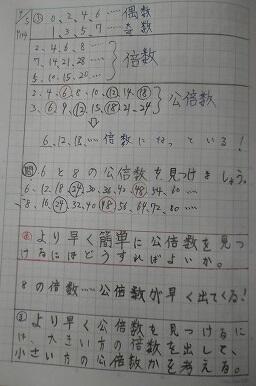 9/5 ① 0、2、4、6 …… 偶数
P114 1、3、5、7 …… 奇数
2、4、6、8 ……
7、14、21、28 …… 倍数
5、10、15、20 ……
2、4、6、8、10、12、14、18
3、6、9、12、15、18、21、24 公倍数
6、12、18、…… 倍数になっている!
問 6と8の公倍数を見つけましょう。
6、12、18、24、30、36、42、48、54、60 ……
8、16、24、32、40、48、56、64、72、80 ……
より早く簡単に公倍数を見つ
けるにはどうすればよいか。
8の倍数……公倍数が早く出てくる!
より早く公倍数を見つけるに
は、大きい方の倍数を出して、
小さい方の公倍数かを考える。